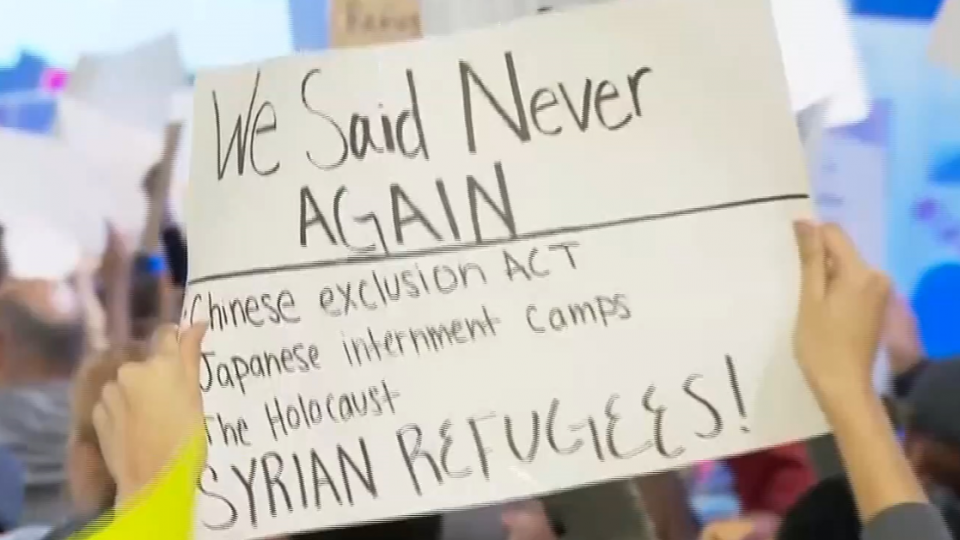 We Said Never
AGAIN
Chinese exclusion ACT
Japanese internment camps
The Holocaust
SYRIAN REFUGEES!